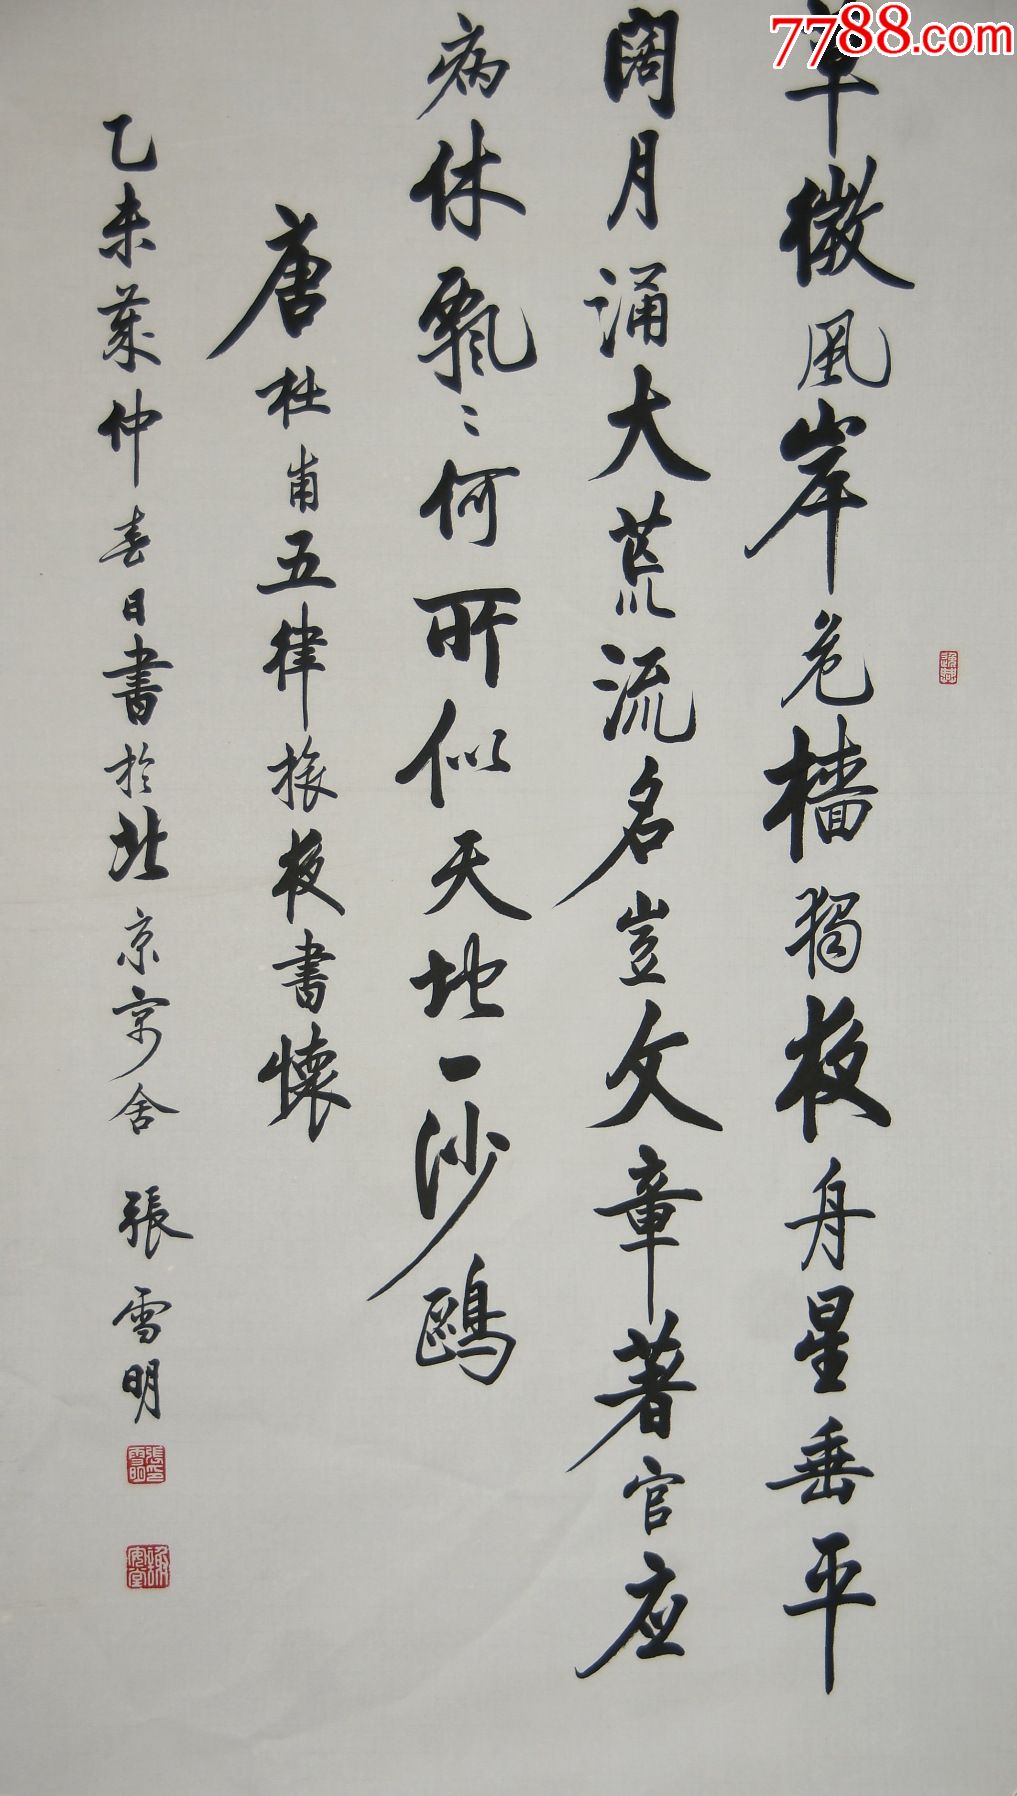 7788.com
草微風岸危檣獨夜舟星垂平
阔月涌大荒流名豈文章著官应
病休飄〻何所似天地一沙鷗
唐杜甫五律旅夜書懷
乙未歲仲春日書於北京寓舍 張雪明